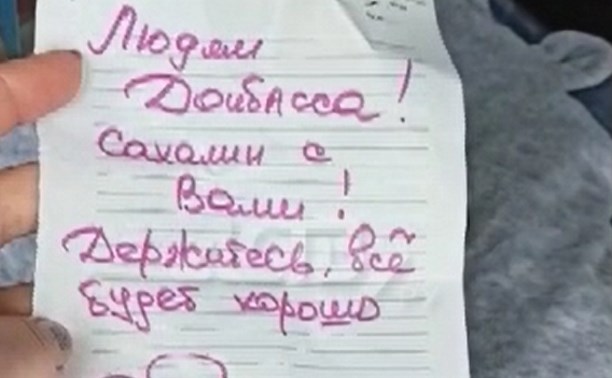 Людям
Донбасса!
Сахалин с
Вами!
Держитесь, всё
будет хорошо